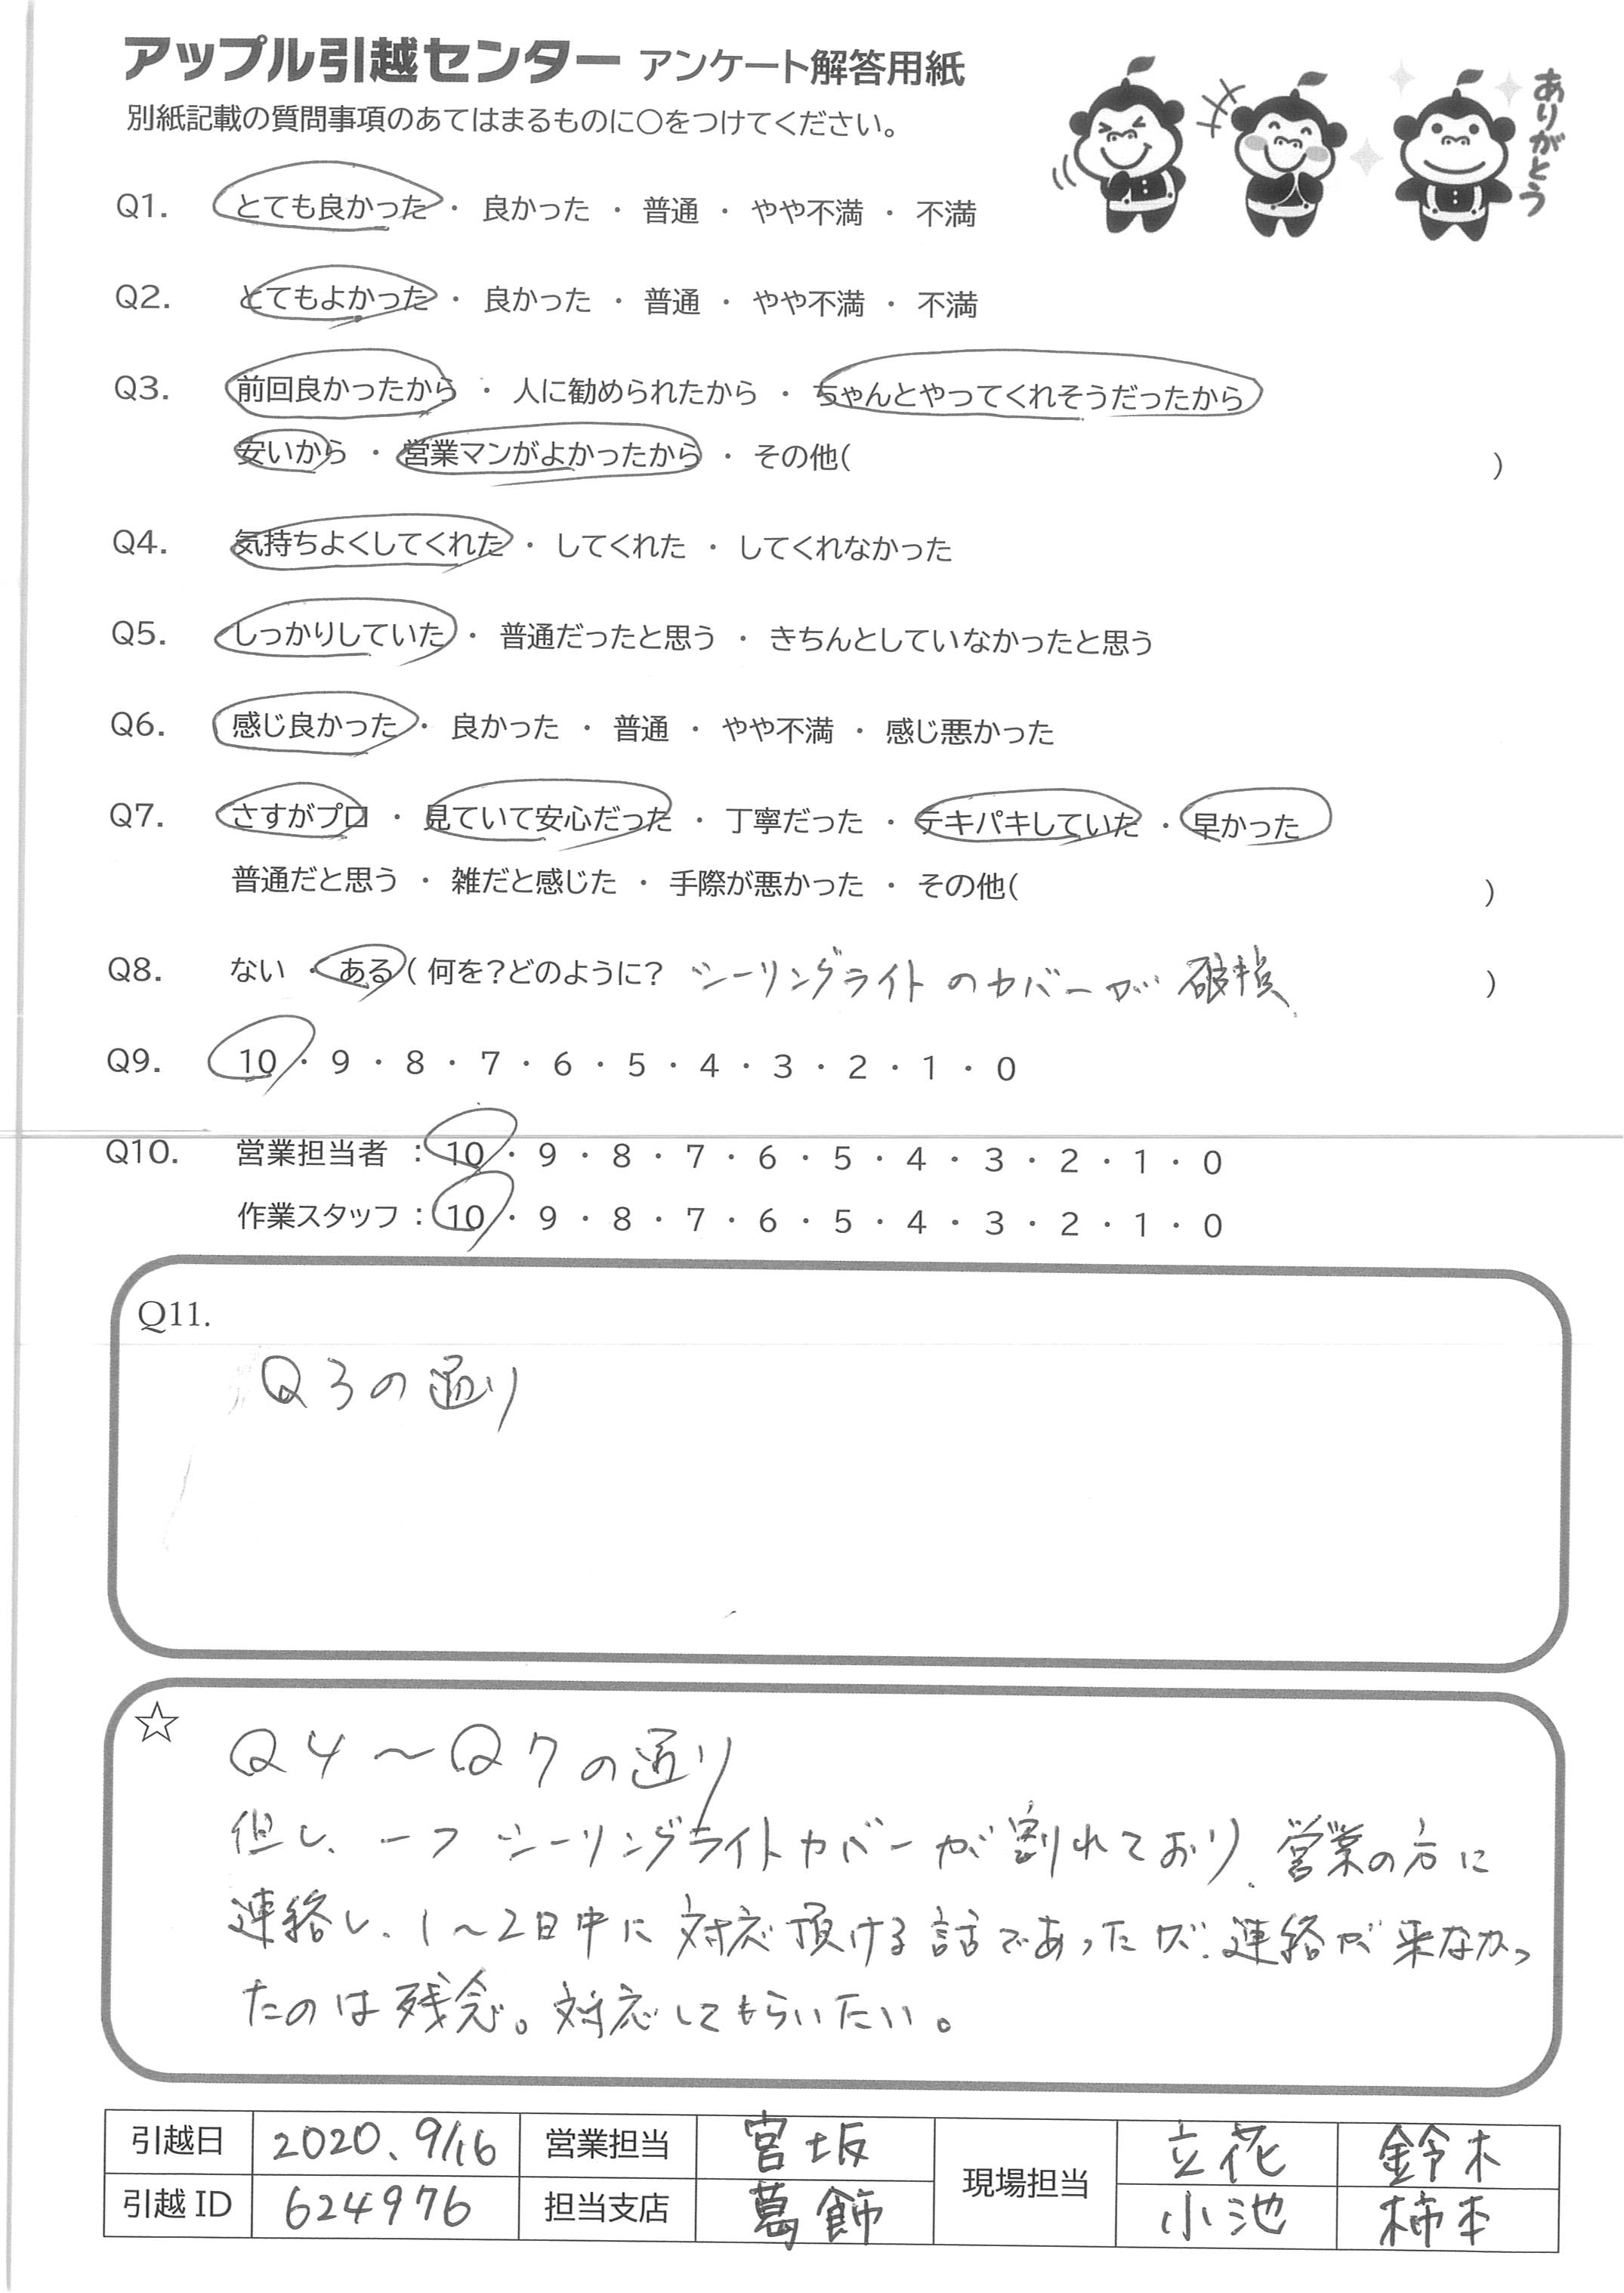 アップル引越センター アンケート解答用紙
別紙記載の質問事項のあてはまるものに○をつけてください。
ありがとう
Q1. とても良かった ・ 良かった ・ 普通 ・ やや不満 ・ 不満
Q2. とてもよかった ・ 良かった ・ 普通 ・ やや不満 ・ 不満
Q3. 前回良かったから ・ 人に勧められたから ・ ちゃんとやってくれそうだったから
安いから ・ 営業マンがよかったから ・ その他( )
Q4. 気持ちよくしてくれた ・ してくれた ・ してくれなかった
Q5. しっかりしていた ・ 普通だったと思う ・ きちんとしていなかったと思う
Q6. 感じ良かった ・ 良かった ・ 普通 ・ やや不満 ・ 感じ悪かった
Q7. さすがプロ ・ 見ていて安心だった ・ 丁寧だった ・ テキパキしていた ・ 早かった
普通だと思う ・ 雑だと感じた ・ 手際が悪かった ・ その他( )
Q8. ない ・ ある ( 何を?どのように? シーリングライトのカバーが 破損 )
Q9. 10 ・ 9 ・ 8 ・ 7 ・ 6 ・ 5 ・ 4 ・ 3 ・ 2 ・ 1 ・ 0
Q10. 営業担当者 : 10 ・ 9 ・ 8 ・ 7 ・ 6 ・ 5 ・ 4 ・ 3 ・ 2 ・ 1 ・ 0
作業スタッフ : 10 ・ 9 ・ 8 ・ 7 ・ 6 ・ 5 ・ 4 ・ 3 ・ 2 ・ 1 ・ 0
Q11.
Q3の通り
☆
Q4〜Q7の通り
但し、一つ シーリングライトカバーが割れており、営業の方に
連絡し、1〜2日中に対応頂ける話であったが、連絡が来なかっ
たのは残念。対応してもらいたい。
引越日 2020、9/16 営業担当 宮坂 現場担当 立花 鈴木
引越ID 624976 担当支店 葛飾 小池 柿本